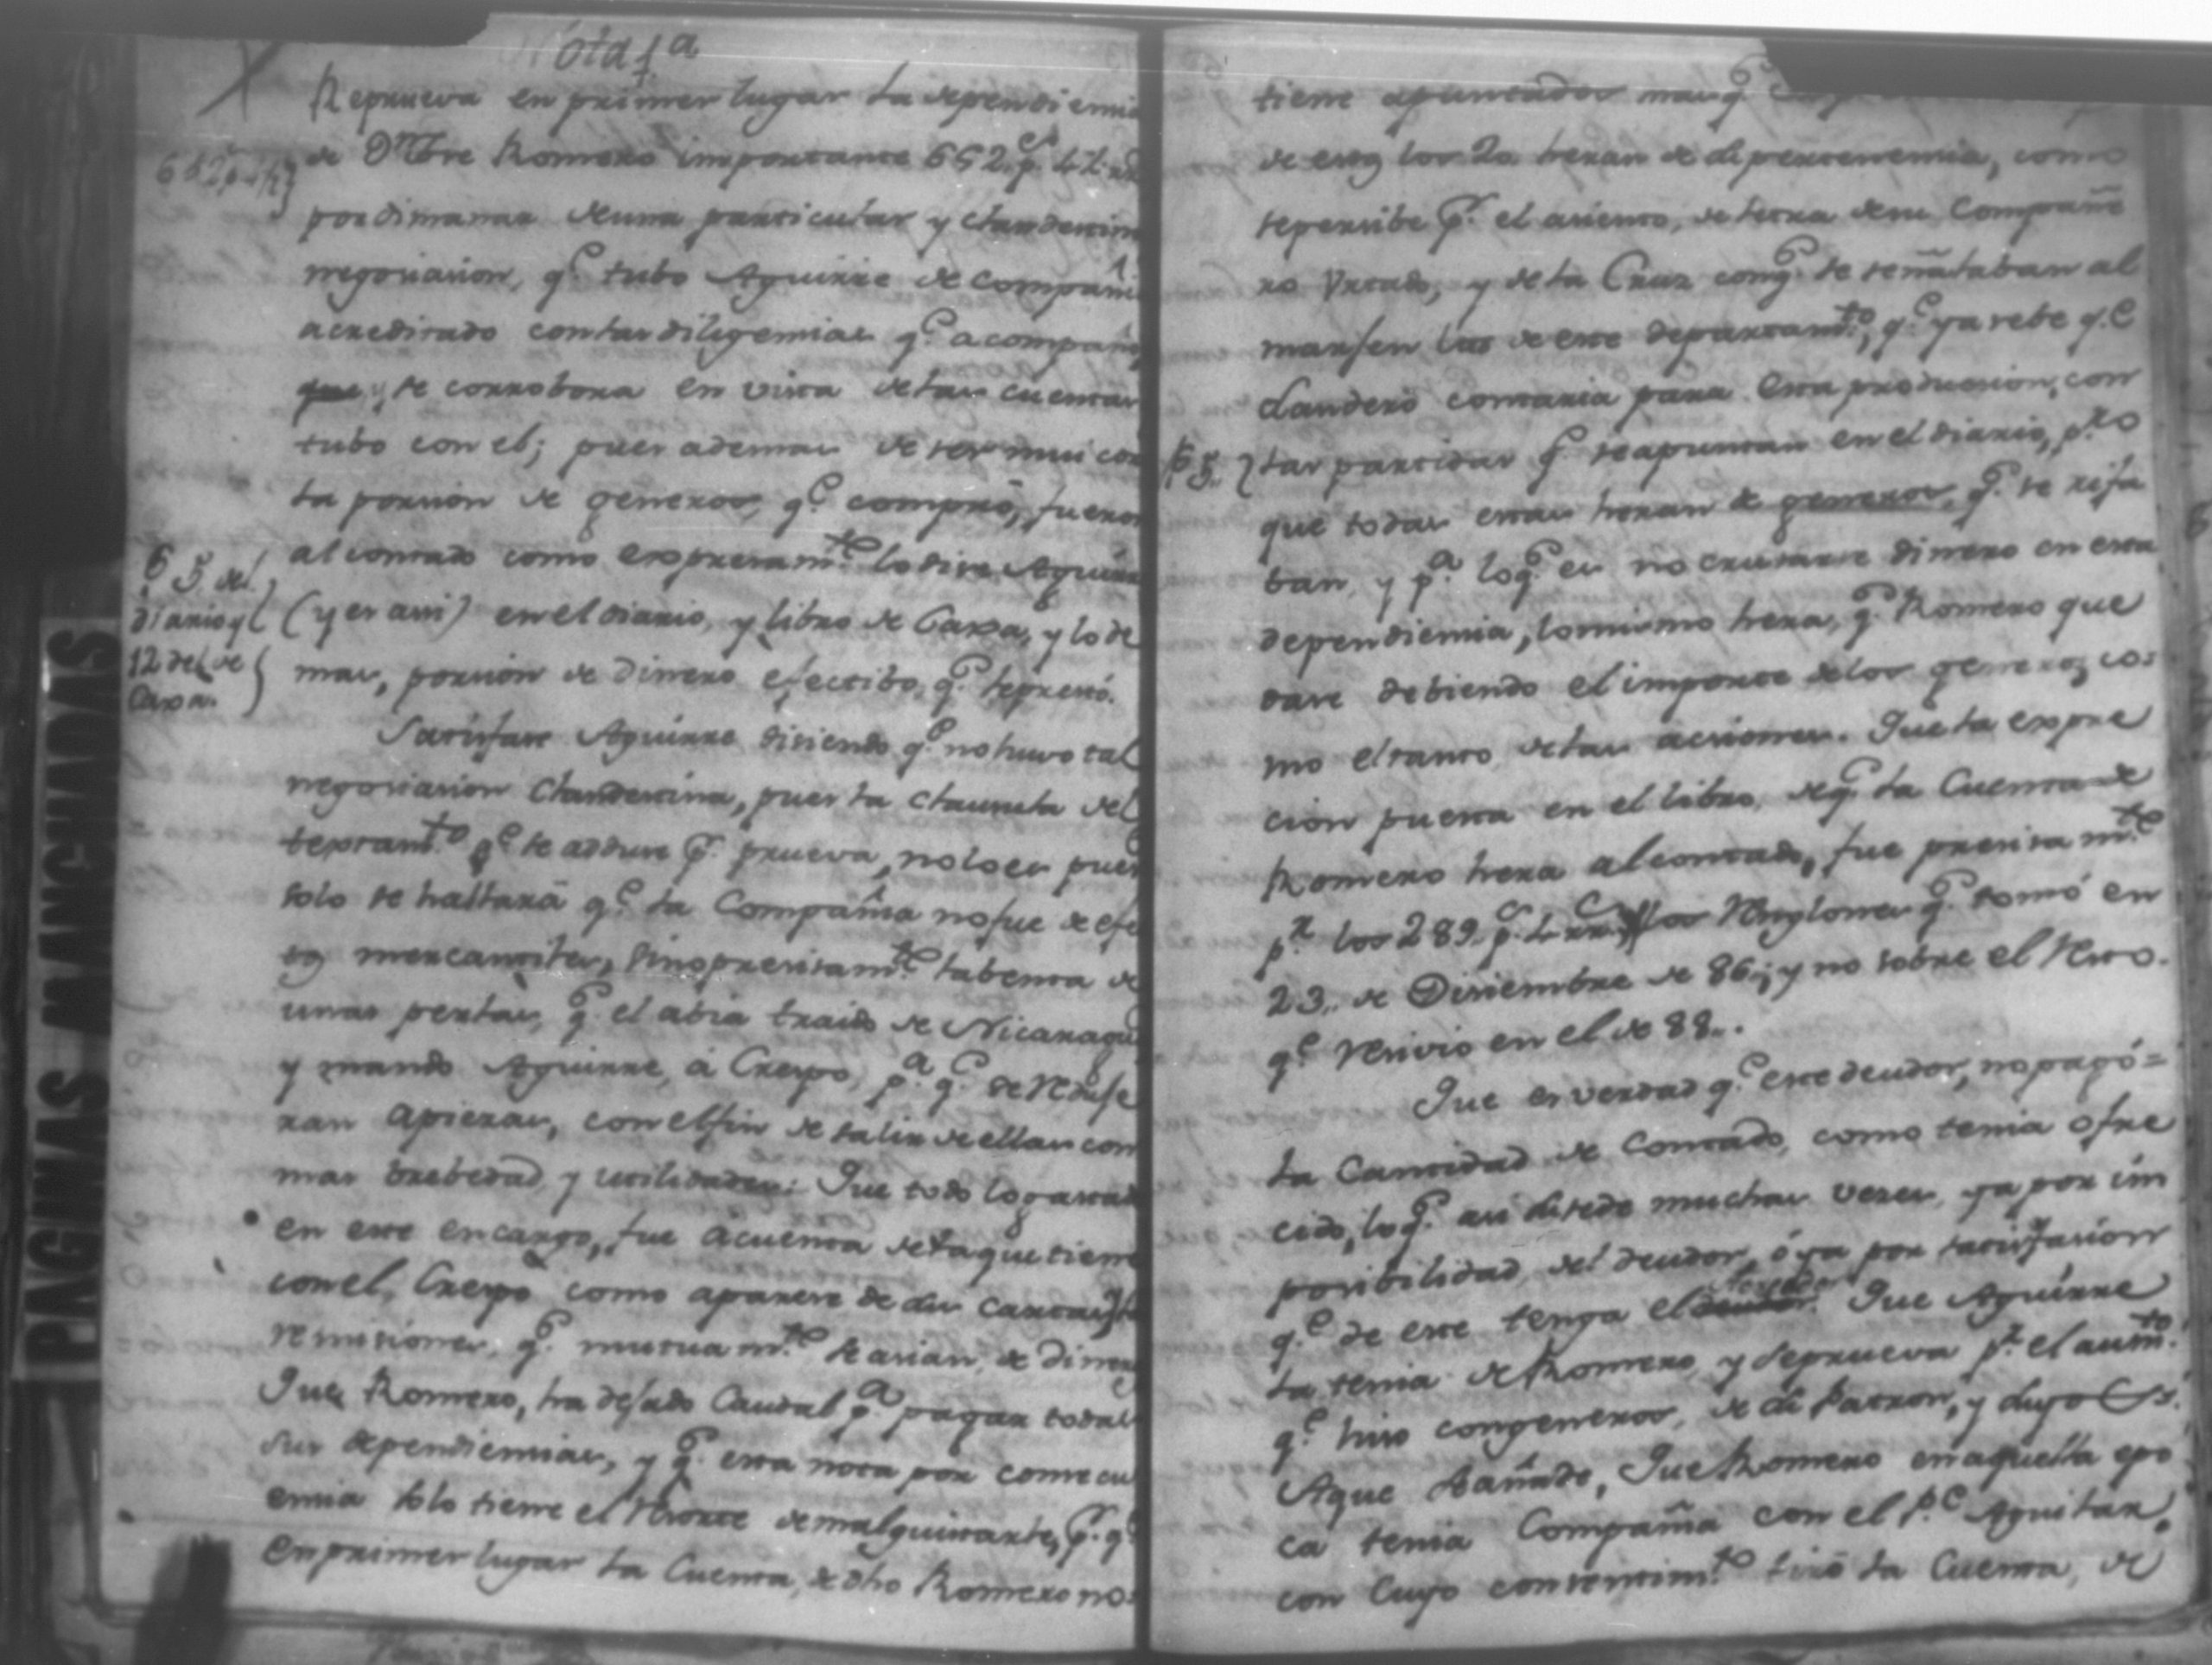 Nota 1ª
Reprueva en primer lugar la dependiencia
de Onofre Romero importante 652 p.s 4 1/2 rr
por dimanar de una particular y clandestina
negociacion, q.e tubo Aguirre de compañi
acreditado con las diligencias q.e acompaño
que, y se corrobora en vista de las cuentas
tubo con el; pues ademas de ser mui cor
ta porsion de generos, q.e compró, fueron
al contado como expresam.te lo dise Aguirre
(y es asi) en el diario, y libro de Caxa, y lo de
mas, porsion de dinero efectibo, q.e le prestó.
6 5. del
diario y
12 del de
Caxa.
Satisfase Aguirre disiendo q.e no huvo tal
negociacion Clandestina, pues la clausula del
textam.to q.e se aduse p.r prueva, no lo es pues
solo se hallará q.e la Compañia no fue de efe
tos mercantiles, sino presisam.te la benta de
unas perlas, q.e el abia traido de Nicaragu
y mando Aguirre, á Crespo, p.a q.e se reduje
ran apiezas, con el fin de salir de ellas con
mas brebedad, y utilidades: Que todo lo gastad
en este encargo, fue acuenta de la que tiene
con el, Crespo como aparese de sus cartas, y
remisiones, q.e mutuam.te se asian, de dinero
Que Romero, ha dejado Caudal p.a pagar todas
sus dependiencias, y q.e esta nota por consecu
encia solo tiene el de malquistarle, p.r q.e
En primer lugar la Cuenta, de dho Romero no
tiene apuntados mas q.e
de estos los 20 heran de di pertenencia, como
se persibe p.r el asiento, de letra de su Compañe
ro Vrtado, y de la Cruz con q.e se señalaban al
marjen los de este departam.to, q.e ya sebe q.e
Landero contaria para esta produccion, con
6 5. las partidas q.e se apuntan en el diario, p.ro
que todas estas heran de generos, q.e se rifa
ban, y p.a lo q.e es no crusarse dinero en esta
dependiencia, lo mismo hera, q.e Romero que
dase debiendo el importe de los generos co
mo el tanto de las acciones. Que la expre
cion puesta en el libro, de q.e la Cuenta de
Romero hera al contado, fue presisam.te
p.r los 289 p.s 4 rr.s Renglones q.e tomó en
23.. de Disiembre de 86.; y no sobre el Resto.
q.e Resivio en el de 88..
Que es verdad q.e este deudor, no pagó =
la Cantidad de Contado, como tenia ofre
cido, lo q.e asi susede muchas veses, ya por im
posibilidad del deudor, ó ya por satisfasion
q.e de este tenga el deudor. Que Aguirre
la tenia de Romero, y se prueva p.r el aum.to
q.e hiso con generos, de su Patron, y suyo
Romero en aquella epo
ca tenia Compañia con el P.e Aguilar,
con cuyo consentim.to tiró la Cuenta, de